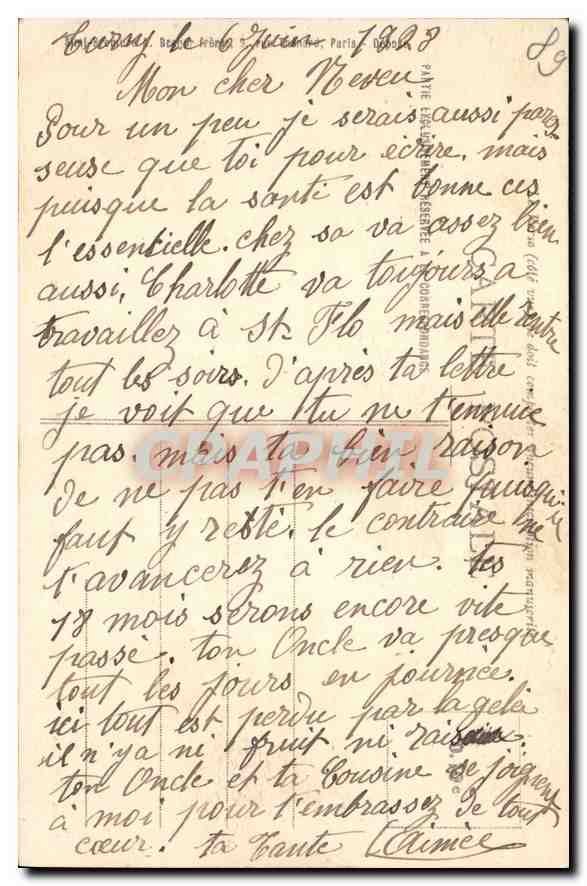 le 6 Juin 1928
89
Mon cher Neveu
Pour un peu je serais aussi pares
seuse que toi pour écrire. mais
puisque la santé est bonne ces
l'essentielle. chez sa va assez bien
aussi, Charlotte va toujours a
travaillez à St Flo mais elle rentre
tout les soirs. D'après ta lettre
je voit que tu ne t'ennuie
pas. mais ta bien raison
de ne pas t'en faire puisqu'il
faut y resté. le contraire ne
t'avancerez à rien. les
18 mois serons encore vite
passé. ton Oncle va presque
tout les jours en journée.
ici tout est perdu par la gelé
il n'y a ni fruit ni raisin.
ton Oncle et ta Cousine se joignent
à moi pour t'embrassez de tout
cœur. ta Tante Aimée
PARTIE EXCLUSIVEMENT RÉSERVÉE A LA CORRESPONDANCE
CARTE POSTALE
CPAPHIL